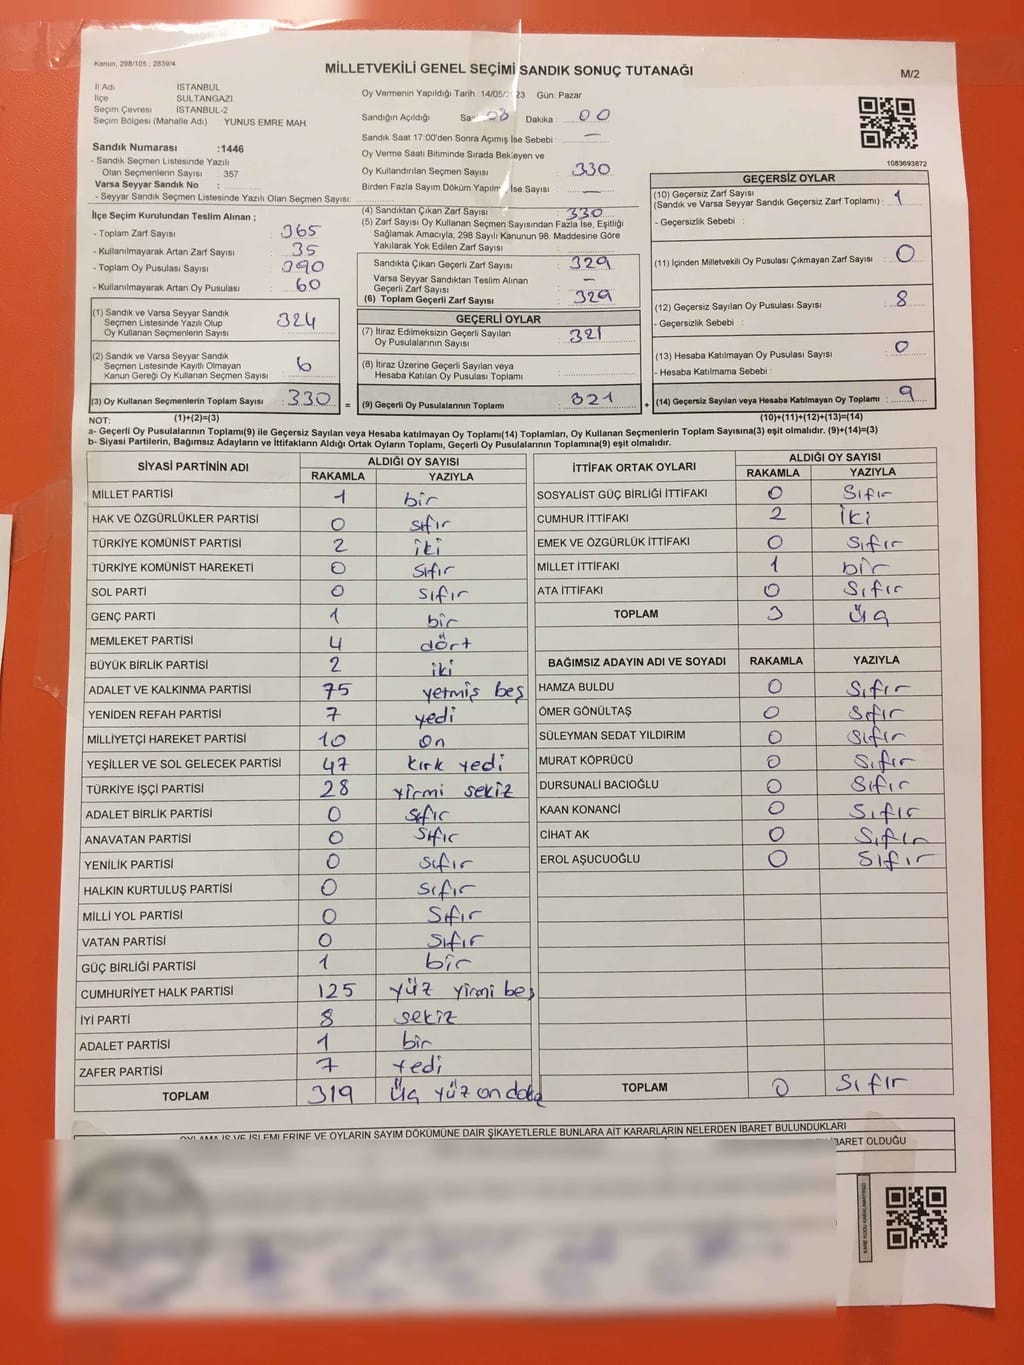 Kanun: 298/105 ; 2839/4
MİLLETVEKİLİ GENEL SEÇİMİ SANDIK SONUÇ TUTANAĞI
M/2
İl Adı İSTANBUL
İlçe SULTANGAZİ
Seçim Çevresi İSTANBUL-2
Seçim Bölgesi (Mahalle Adı) YUNUS EMRE MAH.
Sandık Numarası :1446
- Sandık Seçmen Listesinde Yazılı
Olan Seçmenlerin Sayısı : 357
Varsa Seyyar Sandık No :
- Seyyar Sandık Seçmen Listesinde Yazılı Olan Seçmen Sayısı:
İlçe Seçim Kurulundan Teslim Alınan ;
- Toplam Zarf Sayısı : 365
- Kullanılmayarak Artan Zarf Sayısı : 35
- Toplam Oy Pusulası Sayısı : 390
- Kullanılmayarak Artan Oy Pusulası : 60
(1) Sandık ve Varsa Seyyar Sandık
Seçmen Listesinde Yazılı Olup
Oy Kullanan Seçmenlerin Sayısı 324
(2) Sandık ve Varsa Seyyar Sandık
Seçmen Listesinde Kayıtlı Olmayan
Kanun Gereği Oy Kullanan Seçmen Sayısı : 6
(3) Oy Kullanan Seçmenlerin Toplam Sayısı : 330 =
(1)+(2)=(3)
Oy Vermenin Yapıldığı Tarih :14/05/ 23 Gün: Pazar
Sandığın Açıldığı 08 Dakika : 00
Sandık Saat 17:00'den Sonra Açımış İse Sebebi : —
Oy Verme Saati Bitiminde Sırada Bekleyen ve
Oy Kullandırılan Seçmen Sayısı : 330
Birden Fazla Sayım Döküm Yapılmış İse Sayısı : —
(4) Sandıktan Çıkan Zarf Sayısı : 330
(5) Zarf Sayısı Oy Kullanan Seçmen Sayısından Fazla İse, Eşitliği
Sağlamak Amacıyla, 298 Sayılı Kanunun 98. Maddesine Göre
Yakılarak Yok Edilen Zarf Sayısı :
Sandıkta Çıkan Geçerli Zarf Sayısı : 329
Varsa Seyyar Sandıktan Teslim Alınan
Geçerli Zarf Sayısı : —
(6) Toplam Geçerli Zarf Sayısı : 329
GEÇERLİ OYLAR
(7) İtiraz Edilmeksizin Geçerli Sayılan
Oy Pusulalarının Sayısı : 321
(8) İtiraz Üzerine Geçerli Sayılan veya
Hesaba Katılan Oy Pusulası Toplamı :
(9) Geçerli Oy Pusulalarının Toplamı : 321 +
1083693872
GEÇERSİZ OYLAR
(10) Geçersiz Zarf Sayısı
(Sandık ve Varsa Seyyar Sandık Geçersiz Zarf Toplamı) : 1
- Geçersizlik Sebebi :
(11) İçinden Milletvekili Oy Pusulası Çıkmayan Zarf Sayısı : 0
(12) Geçersiz Sayılan Oy Pusulası Sayısı : 8
- Geçersizlik Sebebi :
(13) Hesaba Katılmayan Oy Pusulası Sayısı : 0
- Hesaba Katılmama Sebebi :
(14) Geçersiz Sayılan veya Hesaba Katılmayan Oy Toplamı : 9
(10)+(11)+(12)+(13)=(14)
NOT:
a- Geçerli Oy Pusulalarının Toplamı(9) ile Geçersiz Sayılan veya Hesaba katılmayan Oy Toplamı(14) Toplamları, Oy Kullanan Seçmenlerin Toplam Sayısına(3) eşit olmalıdır. (9)+(14)=(3)
b- Siyasi Partilerin, Bağımsız Adayların ve İttifakların Aldığı Ortak Oyların Toplamı, Geçerli Oy Pusulalarının Toplamına(9) eşit olmalıdır.
SİYASİ PARTİNİN ADI ALDIĞI OY SAYISI
RAKAMLA YAZIYLA
MİLLET PARTİSİ 1 bir
HAK VE ÖZGÜRLÜKLER PARTİSİ 0 sıfır
TÜRKİYE KOMÜNİST PARTİSİ 2 iki
TÜRKİYE KOMÜNİST HAREKETİ 0 sıfır
SOL PARTİ 0 sıfır
GENÇ PARTİ 1 bir
MEMLEKET PARTİSİ 4 dört
BÜYÜK BİRLİK PARTİSİ 2 iki
ADALET VE KALKINMA PARTİSİ 75 yetmiş beş
YENİDEN REFAH PARTİSİ 7 yedi
MİLLİYETÇİ HAREKET PARTİSİ 10 on
YEŞİLLER VE SOL GELECEK PARTİSİ 47 kırk yedi
TÜRKİYE İŞÇİ PARTİSİ 28 yirmi sekiz
ADALET BİRLİK PARTİSİ 0 sıfır
ANAVATAN PARTİSİ 0 sıfır
YENİLİK PARTİSİ 0 sıfır
HALKIN KURTULUŞ PARTİSİ 0 sıfır
MİLLİ YOL PARTİSİ 0 sıfır
VATAN PARTİSİ 0 sıfır
GÜÇ BİRLİĞİ PARTİSİ 1 bir
CUMHURİYET HALK PARTİSİ 125 yüz yirmi beş
İYİ PARTİ 8 sekiz
ADALET PARTİSİ 1 bir
ZAFER PARTİSİ 7 yedi
TOPLAM 319 üç yüz on
İTTİFAK ORTAK OYLARI ALDIĞI OY SAYISI
RAKAMLA YAZIYLA
SOSYALİST GÜÇ BİRLİĞİ İTTİFAKI 0 sıfır
CUMHUR İTTİFAKI 2 iki
EMEK VE ÖZGÜRLÜK İTTİFAKI 0 sıfır
MİLLET İTTİFAKI 1 bir
ATA İTTİFAKI 0 sıfır
TOPLAM 3 üç
BAĞIMSIZ ADAYIN ADI VE SOYADI RAKAMLA YAZIYLA
HAMZA BULDU 0 sıfır
ÖMER GÖNÜLTAŞ 0 sıfır
SÜLEYMAN SEDAT YILDIRIM 0 sıfır
MURAT KÖPRÜCÜ 0 sıfır
DURSUNALİ BACIOĞLU 0 sıfır
KAAN KONANCİ 0 sıfır
CİHAT AK 0 sıfır
EROL AŞUCUOĞLU 0 sıfır
TOPLAM 0 sıfır
OYLAMA İŞ VE İŞLEMLERİNE VE OYLARIN SAYIM DÖKÜMÜNE DAİR ŞİKAYETLERLE BUNLARA AİT KARARLARIN NELERDEN İBARET BULUNDUKLARI
İBARET OLDUĞU